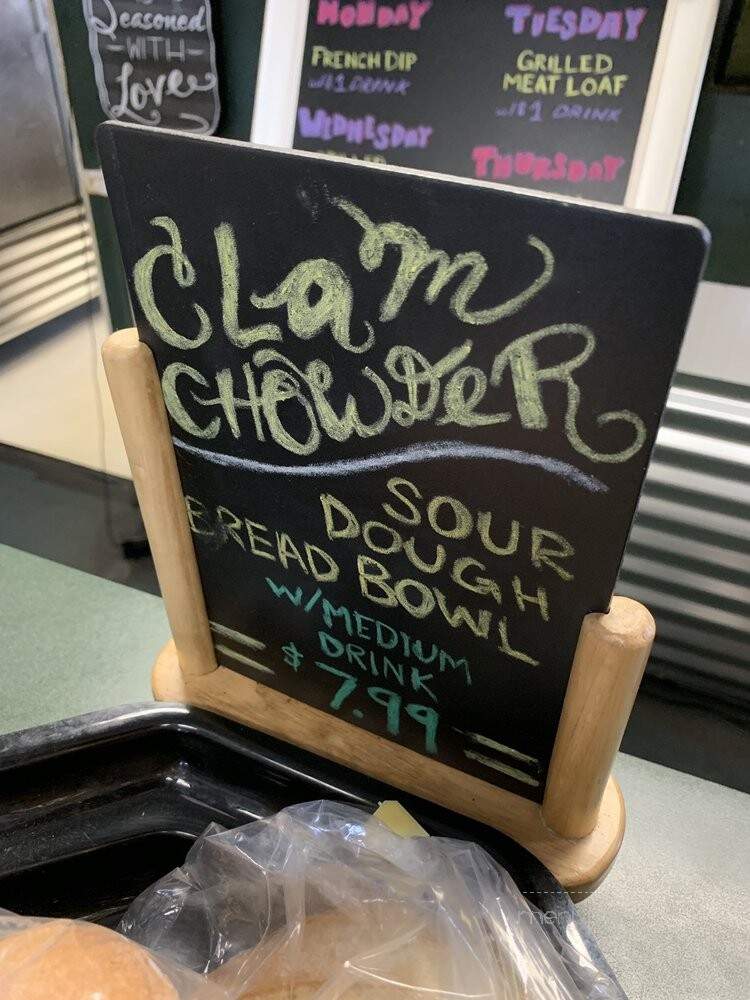 Seasoned
WITH
Love
MONDAY
FRENCH DIP
w/1 DRINK
WEDNESDAY
TUESDAY
GRILLED
MEAT LOAF
w/ 1 DRINK
THURSDAY
CLam
CHOWDeR
SOUR
DOUGH
BREAD BOWL
W/MEDIUM
DRINK
$ 7.99
men